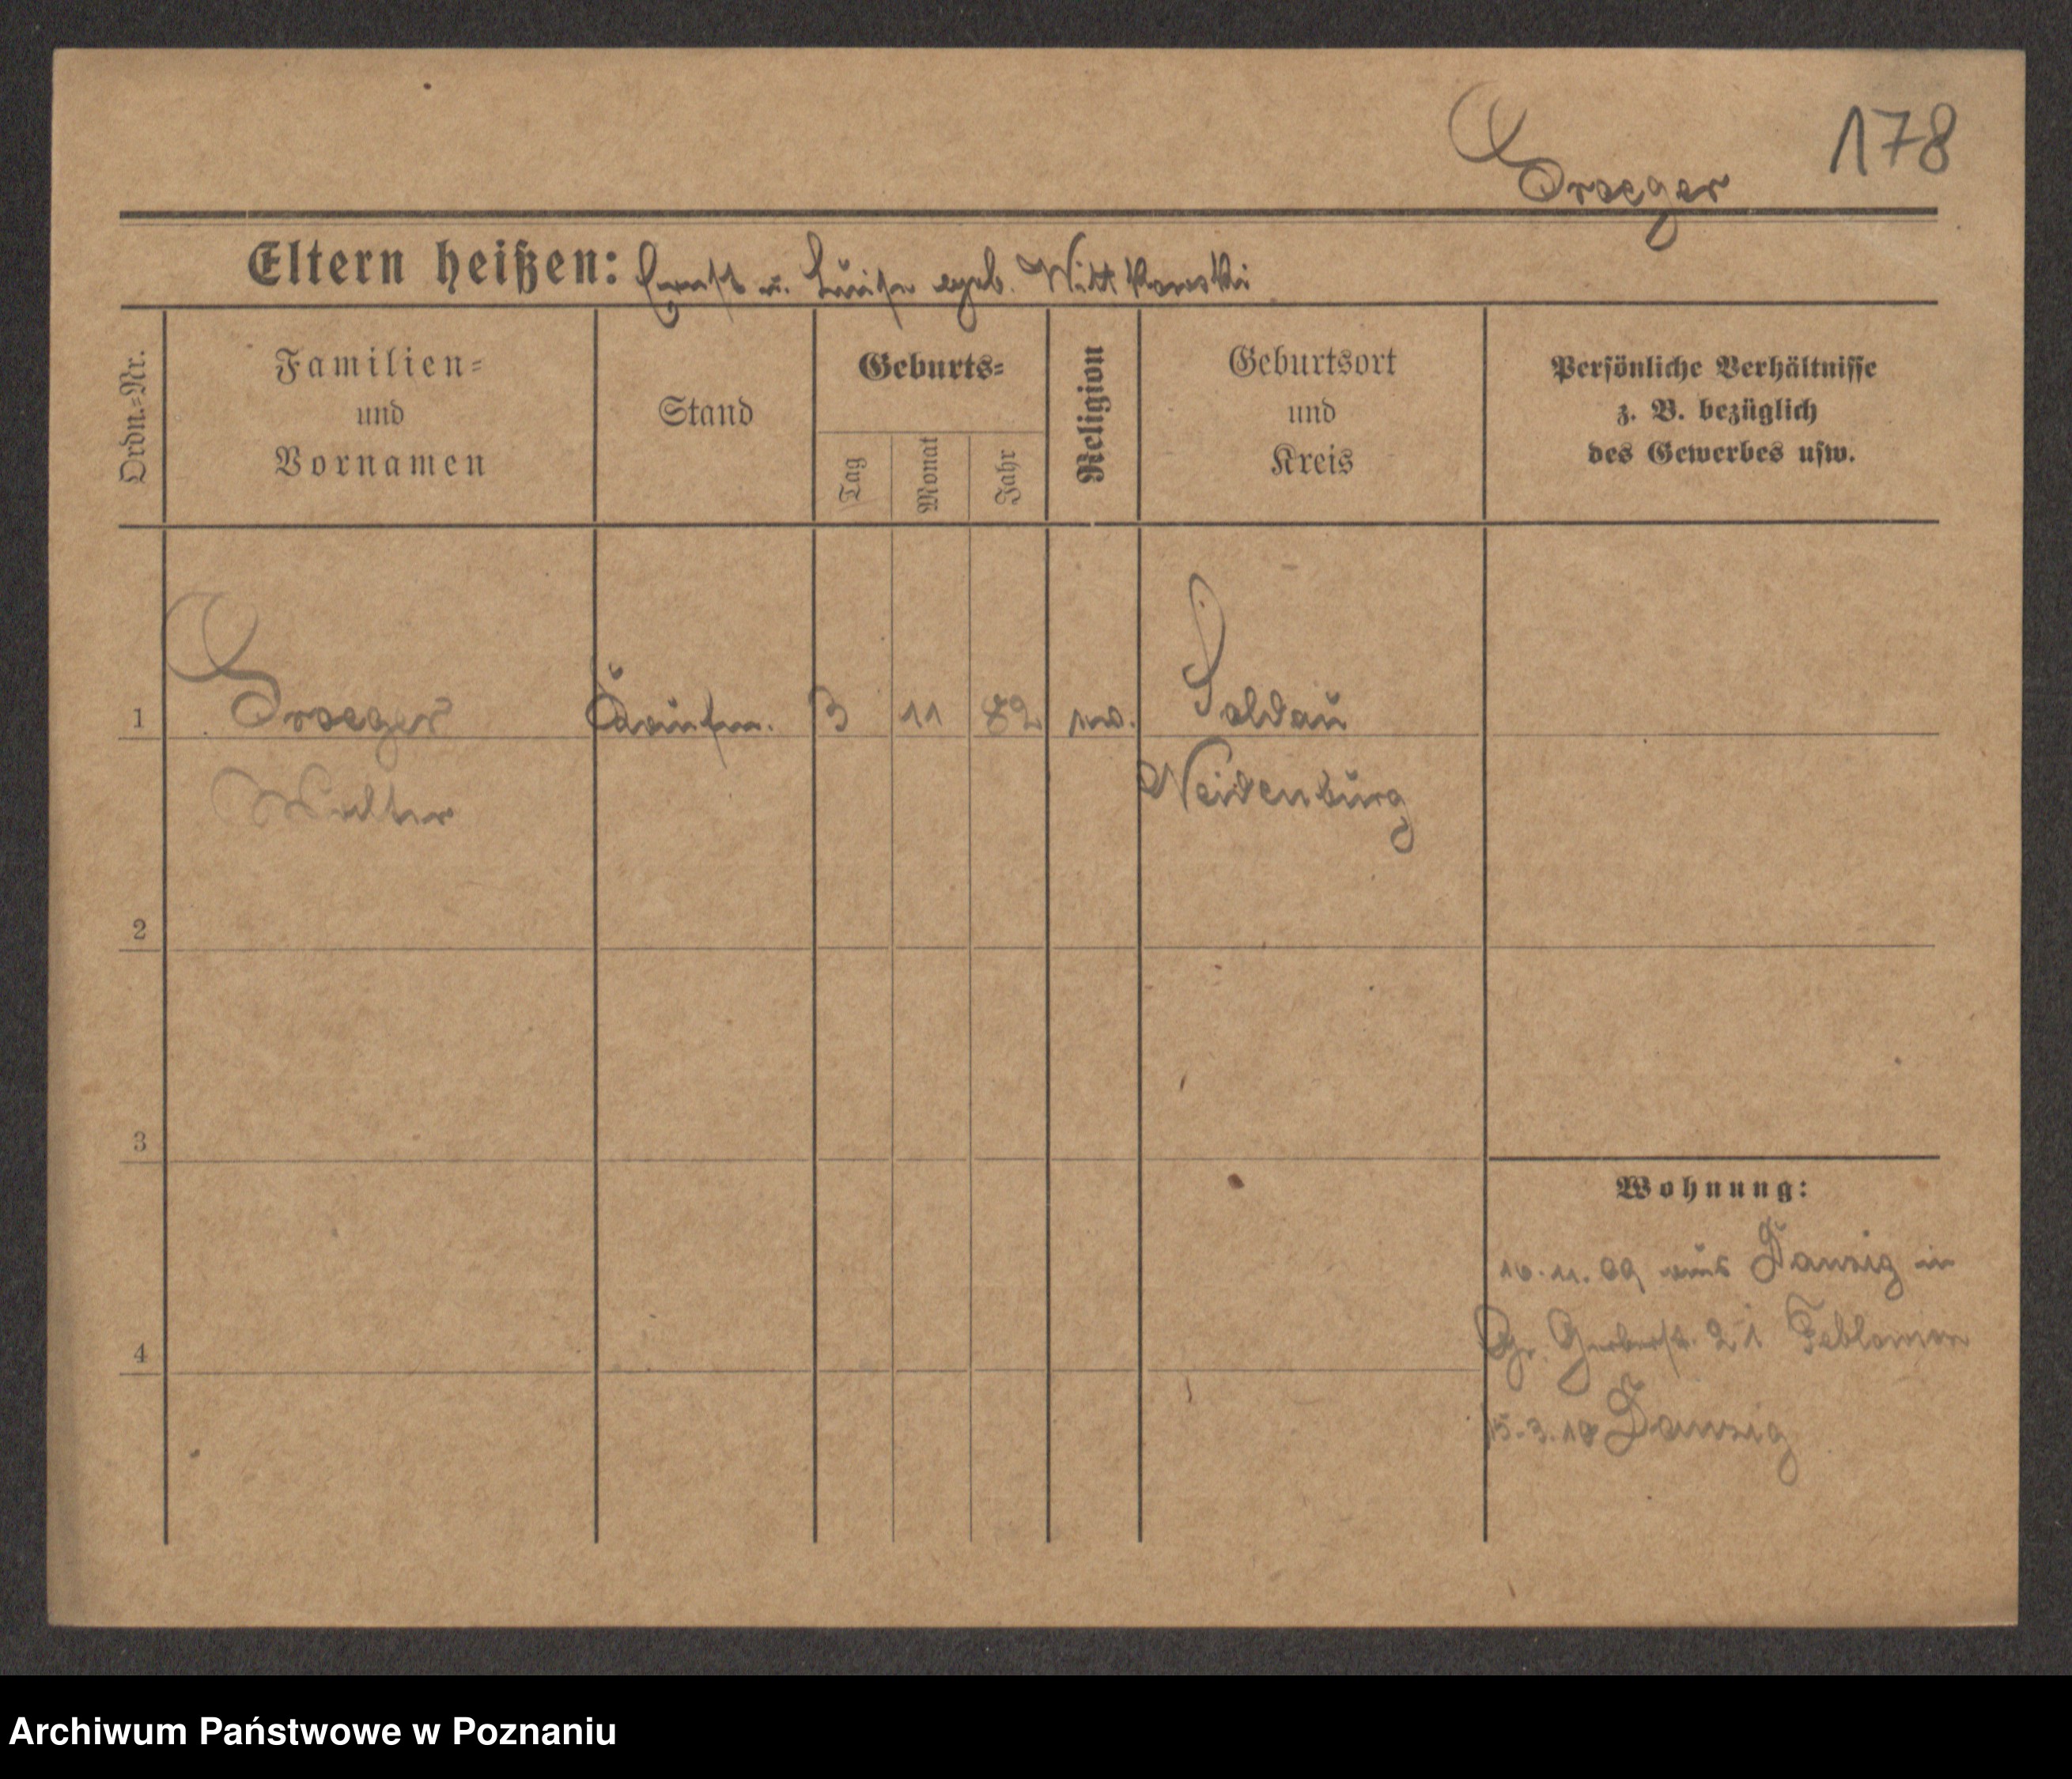 Droeger
178
Eltern heißen: Ernst u. Luise geb. Wittkowski
Ordn.-Nr.
Familien-
und
Vornamen
Stand
Geburts-
Tag
Monat
Jahr
Religion
Geburtsort
und
Kreis
Persönliche Verhältnisse
z. B. bezüglich
des Gewerbes usw.
1 Droeger Kaufm. 3 11 82 Soldau
Walter Neidenburg
2
3
4
Wohnung:
10.11.09 aus Danzig in
Gr. Gerberstr. 21
15.3.10 Danzig
Archiwum Państwowe w Poznaniu